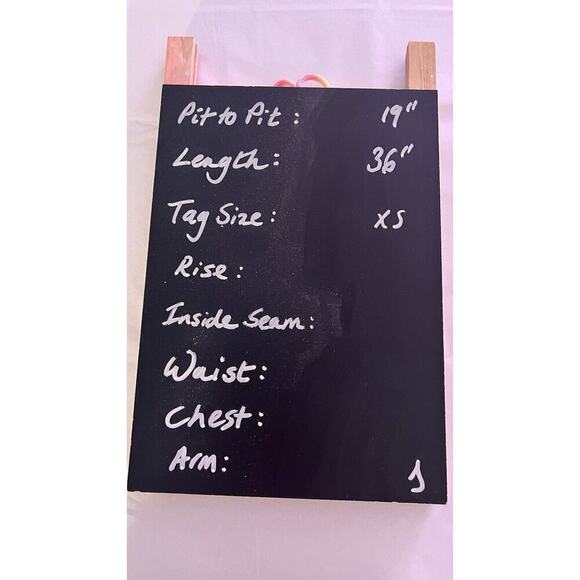 Pit to Pit: 19"
Length: 36"
Tag Size: XS
Rise:
Inside Seam:
Waist:
Chest:
Arm: